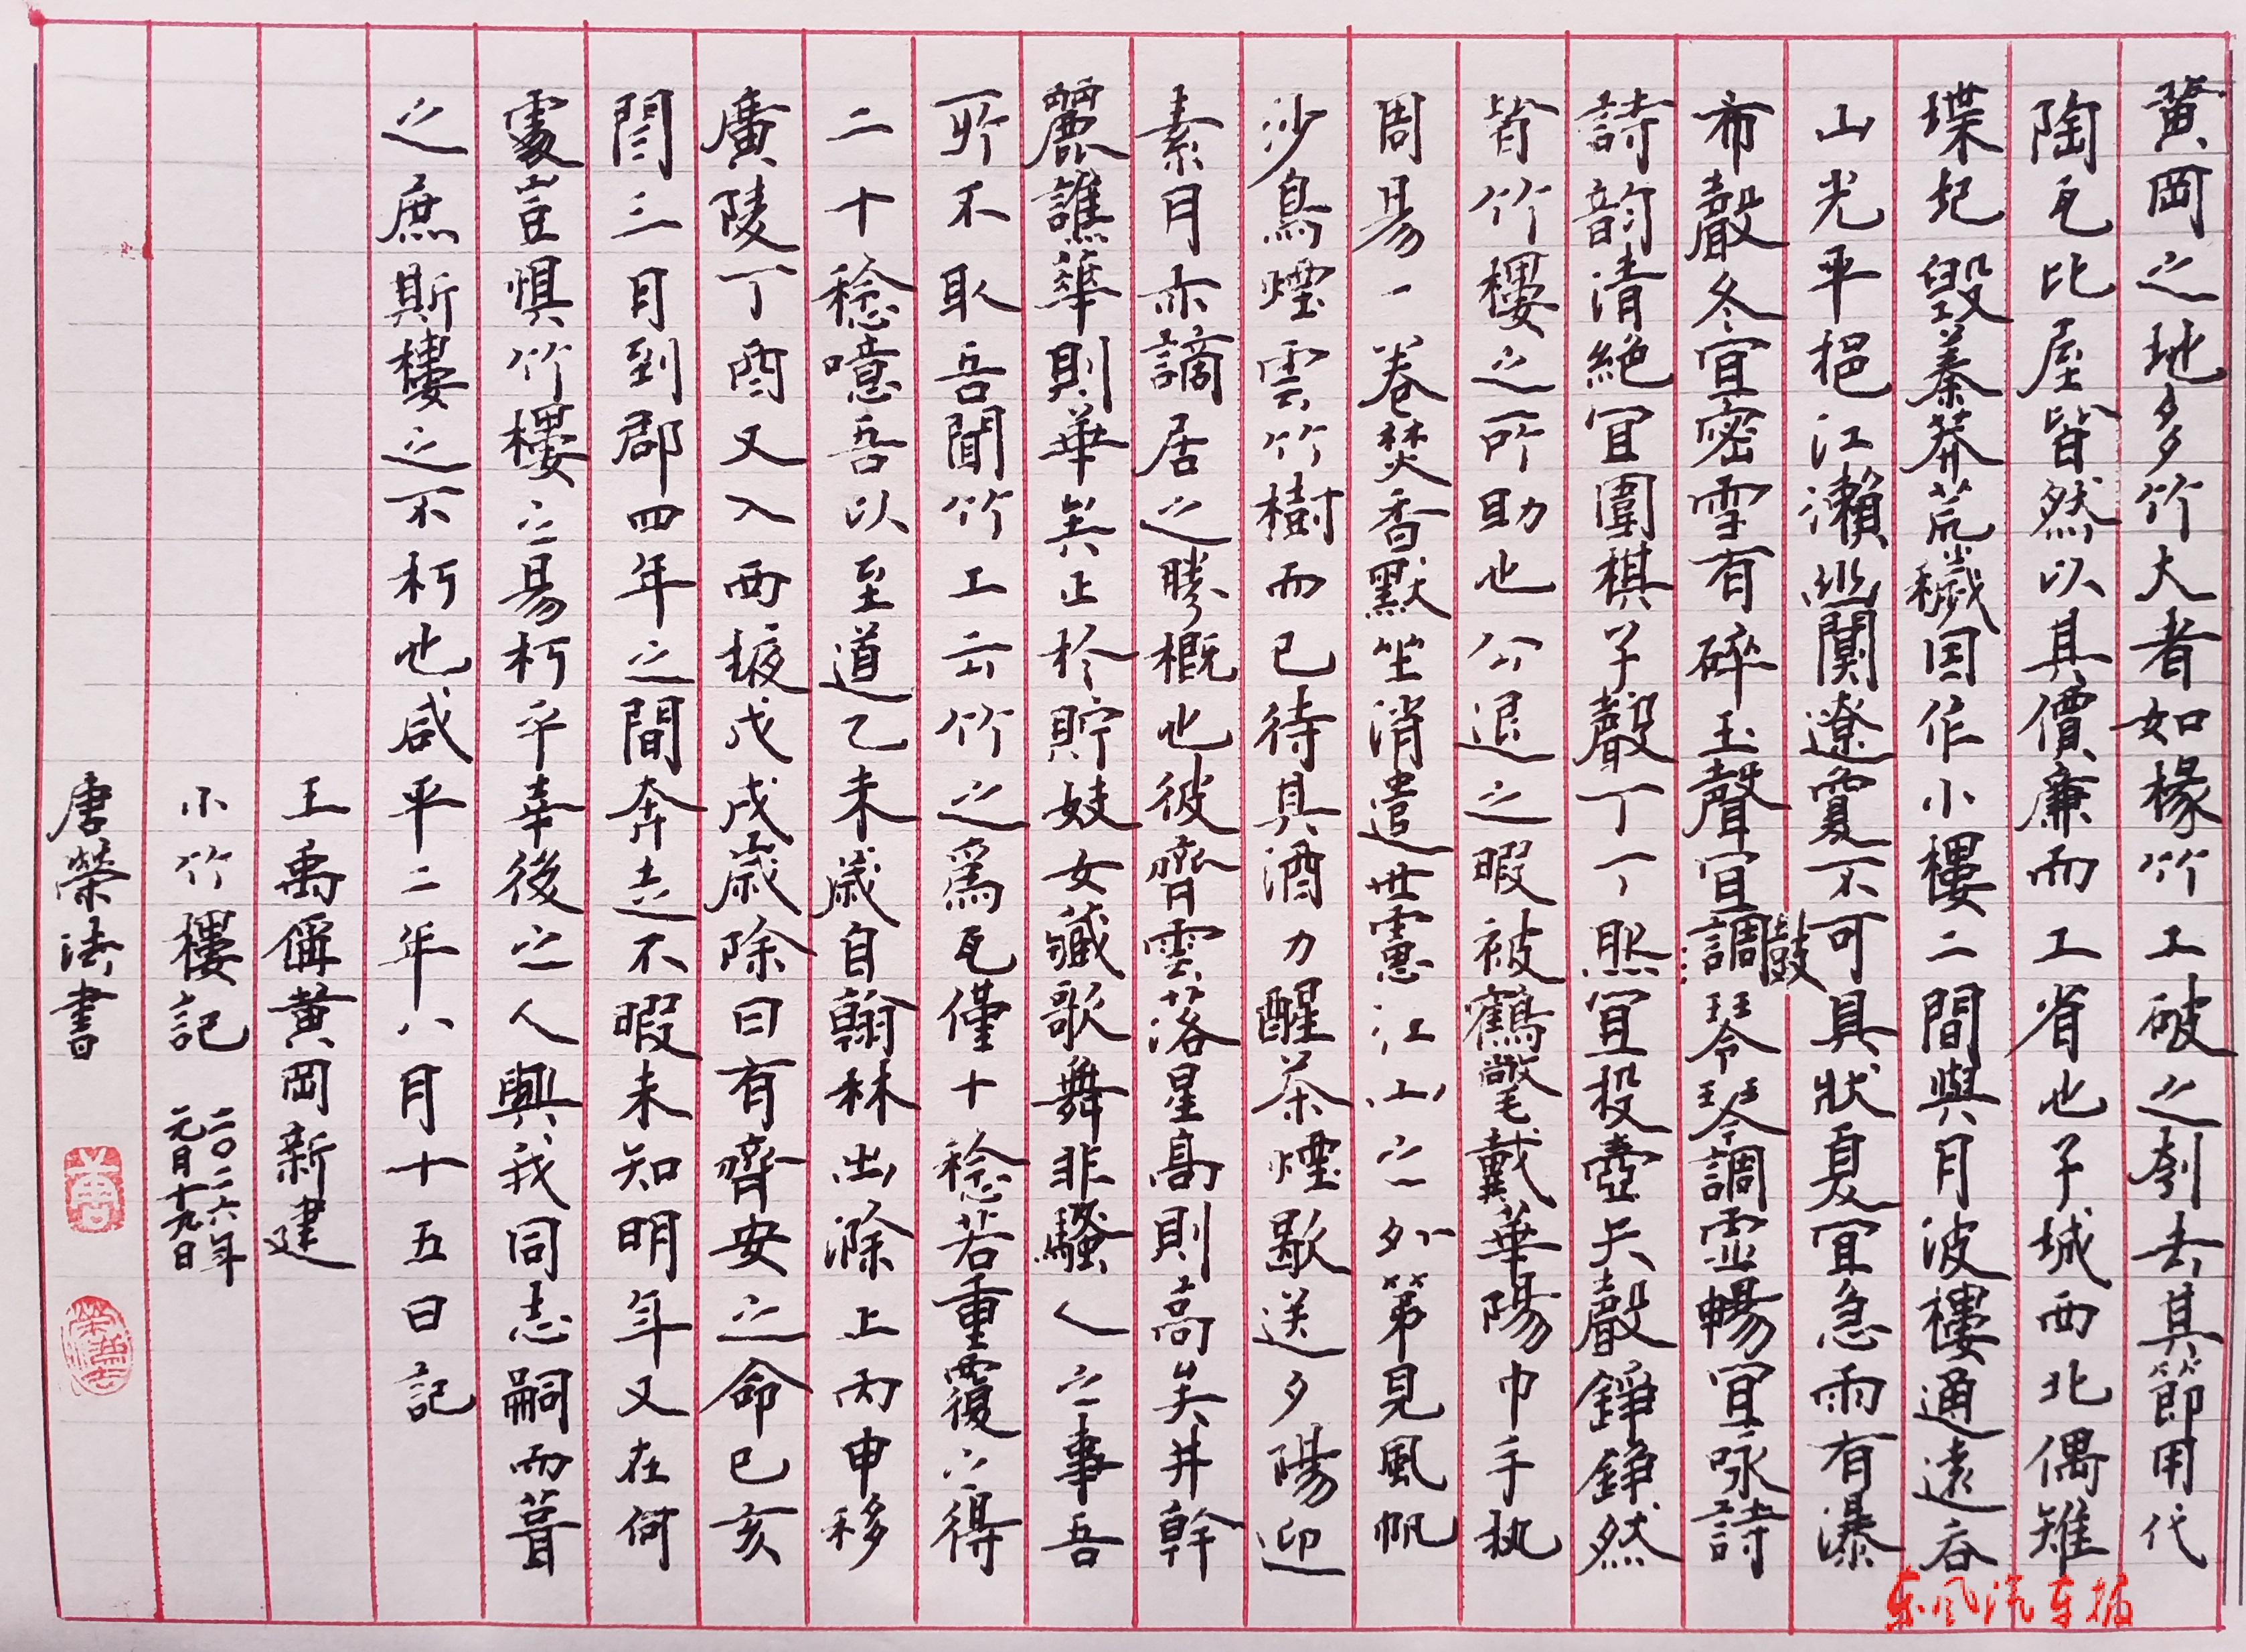 黄岡之地多竹大者如椽竹工破之刳去其節用代
陶瓦比屋皆然以其價廉而工省也子城西北偶雉
堞圮毀蓁莽荒穢因作小樓二間與月波樓通遠吞
山光平挹江瀨幽闃遼夐不可具狀夏宜急雨有瀑
布聲冬宜密雪有碎玉聲宜鼓調琴琴調虛暢宜咏詩
詩韵清絕宜圍棋子聲丁丁然宜投壺矢聲錚錚然
皆竹樓之所助也公退之暇被鶴氅戴華陽巾手執
周易一卷焚香默坐消遣世慮江山之外第見風帆
沙鳥煙雲竹樹而已待其酒力醒茶煙歇送夕陽迎
素月亦謫居之勝概也彼齊雲落星高則高矣井幹
麗譙華則華矣止於貯妓女藏歌舞非騷人之事吾
所不取吾聞竹工云竹之為瓦僅十稔若重覆之得
二十稔噫吾以至道乙未歲自翰林出滁上丙申移
廣陵丁酉又入西掖戊戌歲除日有齊安之命己亥
閏三月到郡四年之間奔走不暇未知明年又在何
處豈懼竹樓之易朽乎幸後之人與我同志嗣而葺
之庶斯樓之不朽也咸平二年八月十五日記
王禹偁黄岡新建
小竹樓記 二〇二六年
元月十九日
唐榮法書
东风汽车报